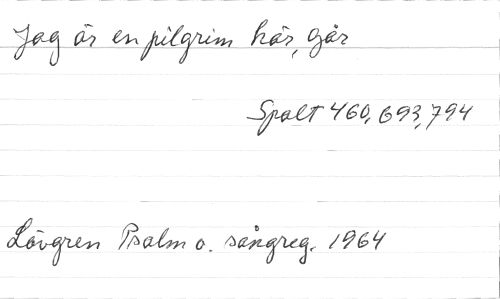 Jag är en pilgrim här, går
Spalt 460, 693, 794
Lövgren Psalm o. sångreg. 1964